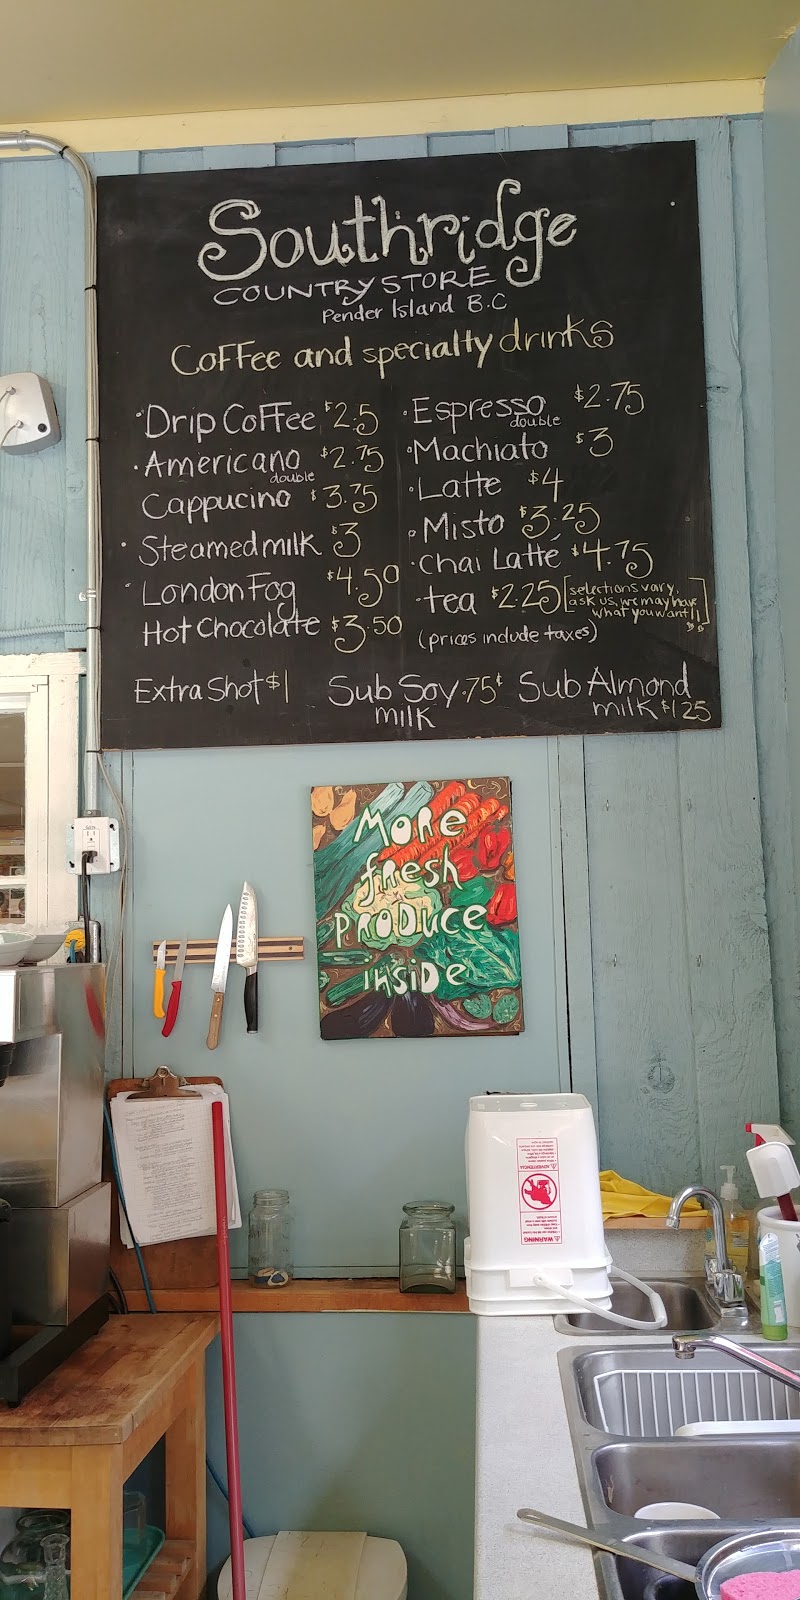 Southridge
COUNTRY STORE
Pender Island B.C
Coffee and specialty drinks
Drip Coffee $2.5
Americano $2.75
double
Cappucino $3.75
Steamed milk $3
London Fog $4.50
Hot Chocolate $3.50
Espresso $2.75
double
Machiato $3
Latte $4
Misto $3.25
Chai Latté $4.75
tea $2.25 [selections vary,
ask us, we may have
what you want!!]
(prices include taxes)
Extra Shot $1
Sub Soy .75¢
milk
Sub Almond
milk $1.25
More
fresh
produce
inside
WARNING
ADVERTENCIA